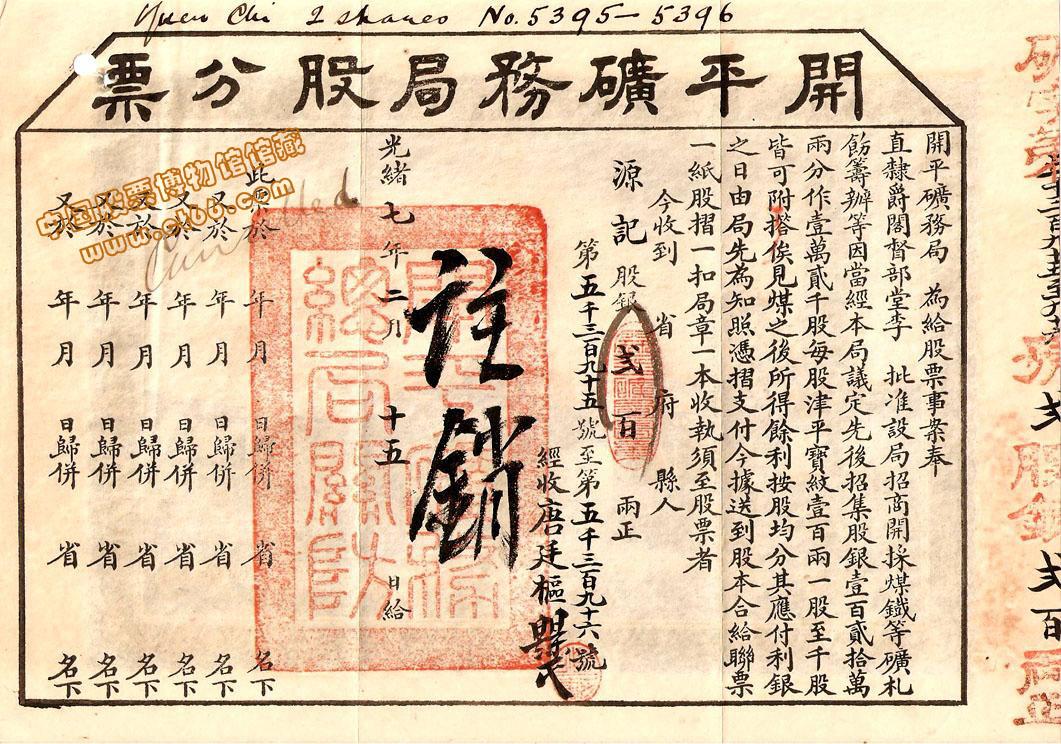 Yuen Chi 2 shares No. 5395-5396
開平礦務局股分票
開平礦務局 為給股票事案奉
直隸爵閣督部堂李 批准設局招商開採煤鐵等礦札
飭籌辦等因當經本局議定先後招集股銀壹百貳拾萬
兩分作壹萬貳千股每股津平寶紋壹百兩一股至千股
皆可附搭俟見煤之後所得餘利按股均分其應付利銀
之日由局先為知照憑摺支付今據送到股本合給聯票
一紙股摺一扣局章一本收執須至股票者
今收到 省 府 縣人
源記 股銀 弍百 兩正
第五千三百九十五號至第五千三百九十六號
經收唐廷樞
註銷
光緒七年二月十五日給
此票於 年 月 日歸併 省 名下
又於 年 月 日歸併 省 名下
又於 年 月 日歸併 省 名下
又於 年 月 日歸併 省 名下
又於 年 月 日歸併 省 名下
又於 年 月 日歸併 省 名下
股銀弍百兩正
中国股票博物馆馆藏
www.ck66.com
Cancelled